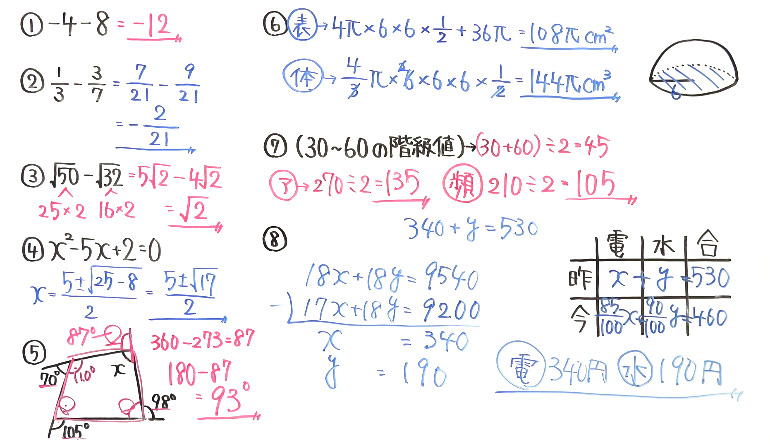 ① -4-8=-12
② 1/3 - 3/7 = 7/21 - 9/21
= -2/21
③ √50-√32=5√2-4√2
25×2 16×2 =√2
④ x²-5x+2=0
x= (5±√25-8)/2 = (5±√17)/2
⑤ 87° 360-273=87
70° 110° x 180-87
=93°
98°
105°
⑥ 表→4π×6×6×1/2+36π=108πcm²
体→4/3π×6×6×6×1/2=144πcm³
6
⑦ (30~60の階級値)→(30+60)÷2=45
ア→270÷2=135 頻 210÷2=105
⑧ 340+y=530
18x+18y=9540
-)17x+18y=9200
x =340
y =190
電 水 合
昨 x + y =530
今 85/100x+90/100y=460
電 340円 水 190円